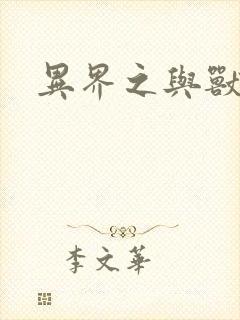 異界之與獸
李文華